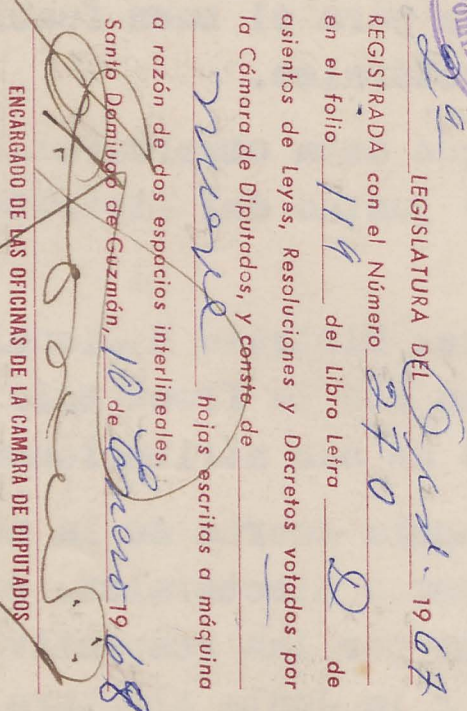 2ª LEGISLATURA DEL Ord. 1967
REGISTRADA con el Número 270
en el folio 119 del Libro Letra D de
asientos de Leyes, Resoluciones y Decretos votados por
la Cámara de Diputados, y consta de
nueve hojas escritas a máquina
a razón de dos espacios interlineales.
Santo Domingo de Guzmán, 10 de Enero 1968
ENCARGADO DE LAS OFICINAS DE LA CAMARA DE DIPUTADOS